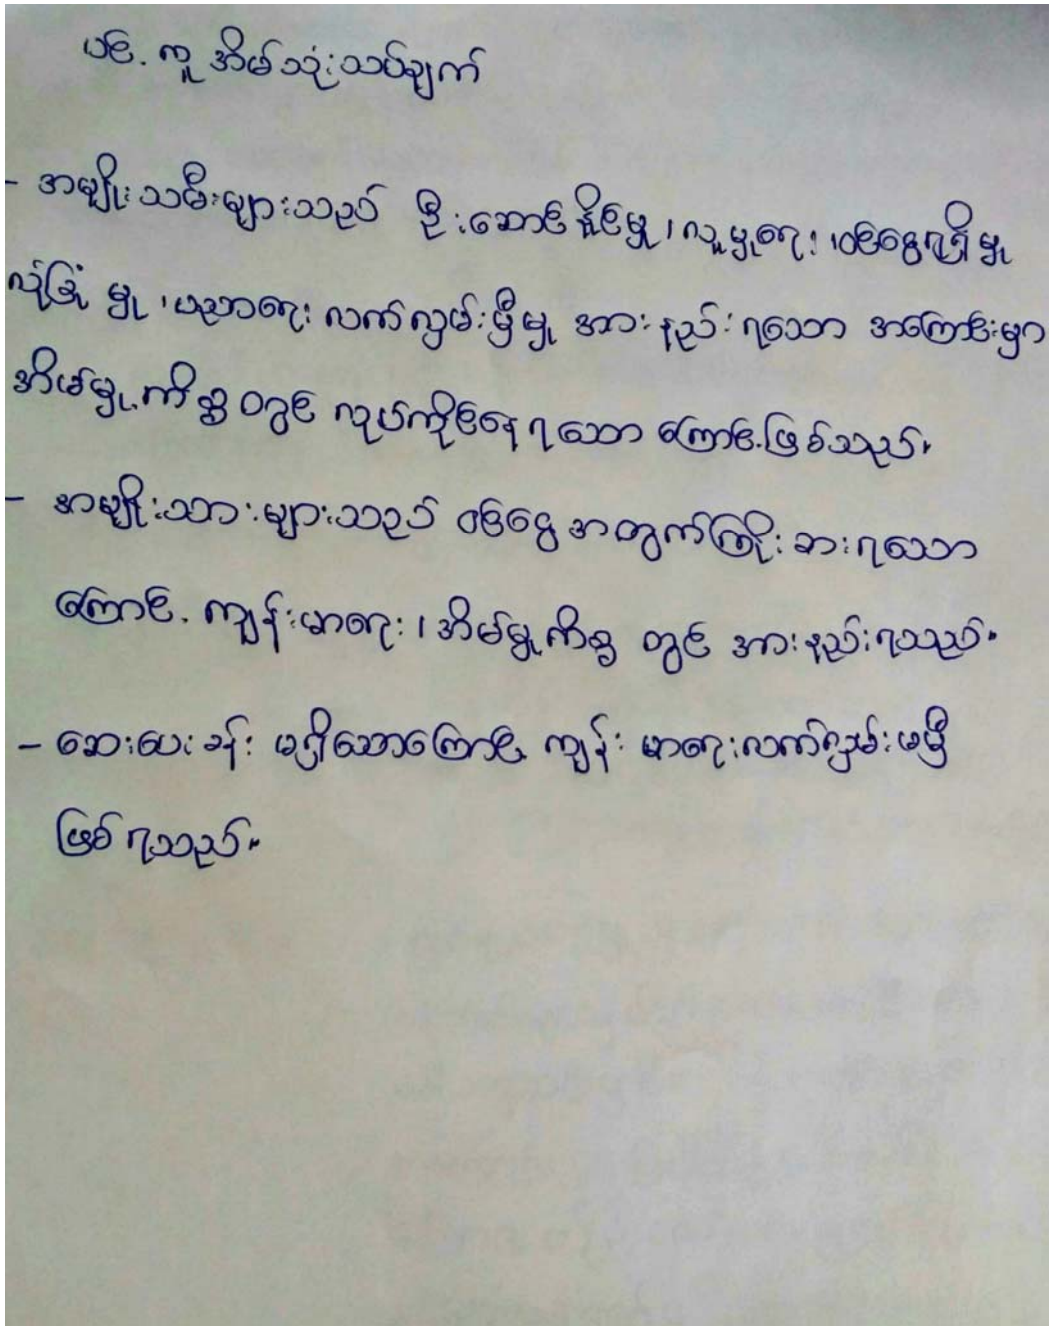 ပင့်ကူအိမ်သုံးသပ်ချက်
- အမျိုးသမီးများသည် ဦးဆောင်နိုင်မှု၊ လူမှုရေး၊ ဝင်ငွေရရှိမှု
လုံခြုံမှု၊ ပညာရေး လက်လှမ်းမှီမှု အားနည်းရသော အကြောင်းမှာ
အိမ်မှုကိစ္စတွင် လုပ်ကိုင်နေရသောကြောင့်ဖြစ်သည်။
- အမျိုးသားများသည် ဝင်ငွေအတွက်ကြိုးစားရသော
ကြောင့် ကျန်းမာရေး၊ အိမ်မှုကိစ္စတွင် အားနည်းရသည်။
- ဆေးပေးခန်း မရှိသောကြောင့် ကျန်းမာရေးလက်လှမ်းမမှီ
ဖြစ်ရသည်။